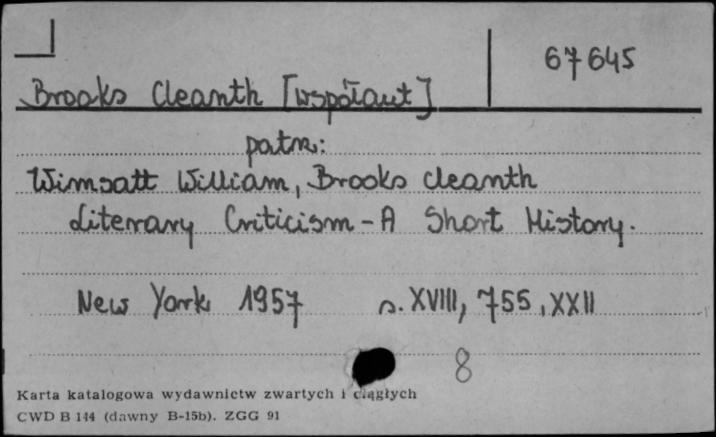 67645
Brooks Cleanth [współaut]
patrz:
Wimsatt William, Brooks Cleanth
Literary Criticism - A Short History.
New York 1957 s. XVIII, 755, XXII
8
Karta katalogowa wydawnictw zwartych i ciągłych
CWD B 144 (dawny B-15b). ZGG 91